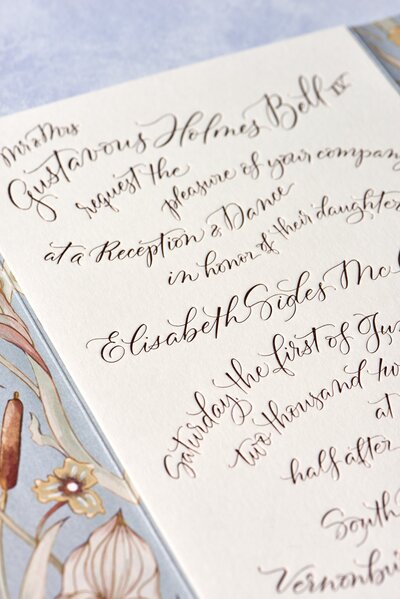 Mr & Mrs
Gustavous Holmes Bell IV
request the
pleasure of your company
at a Reception & Dance
in honor of their daughter
Elisabeth Sides Mc
Saturday the first of
two thousand
at
half after
South